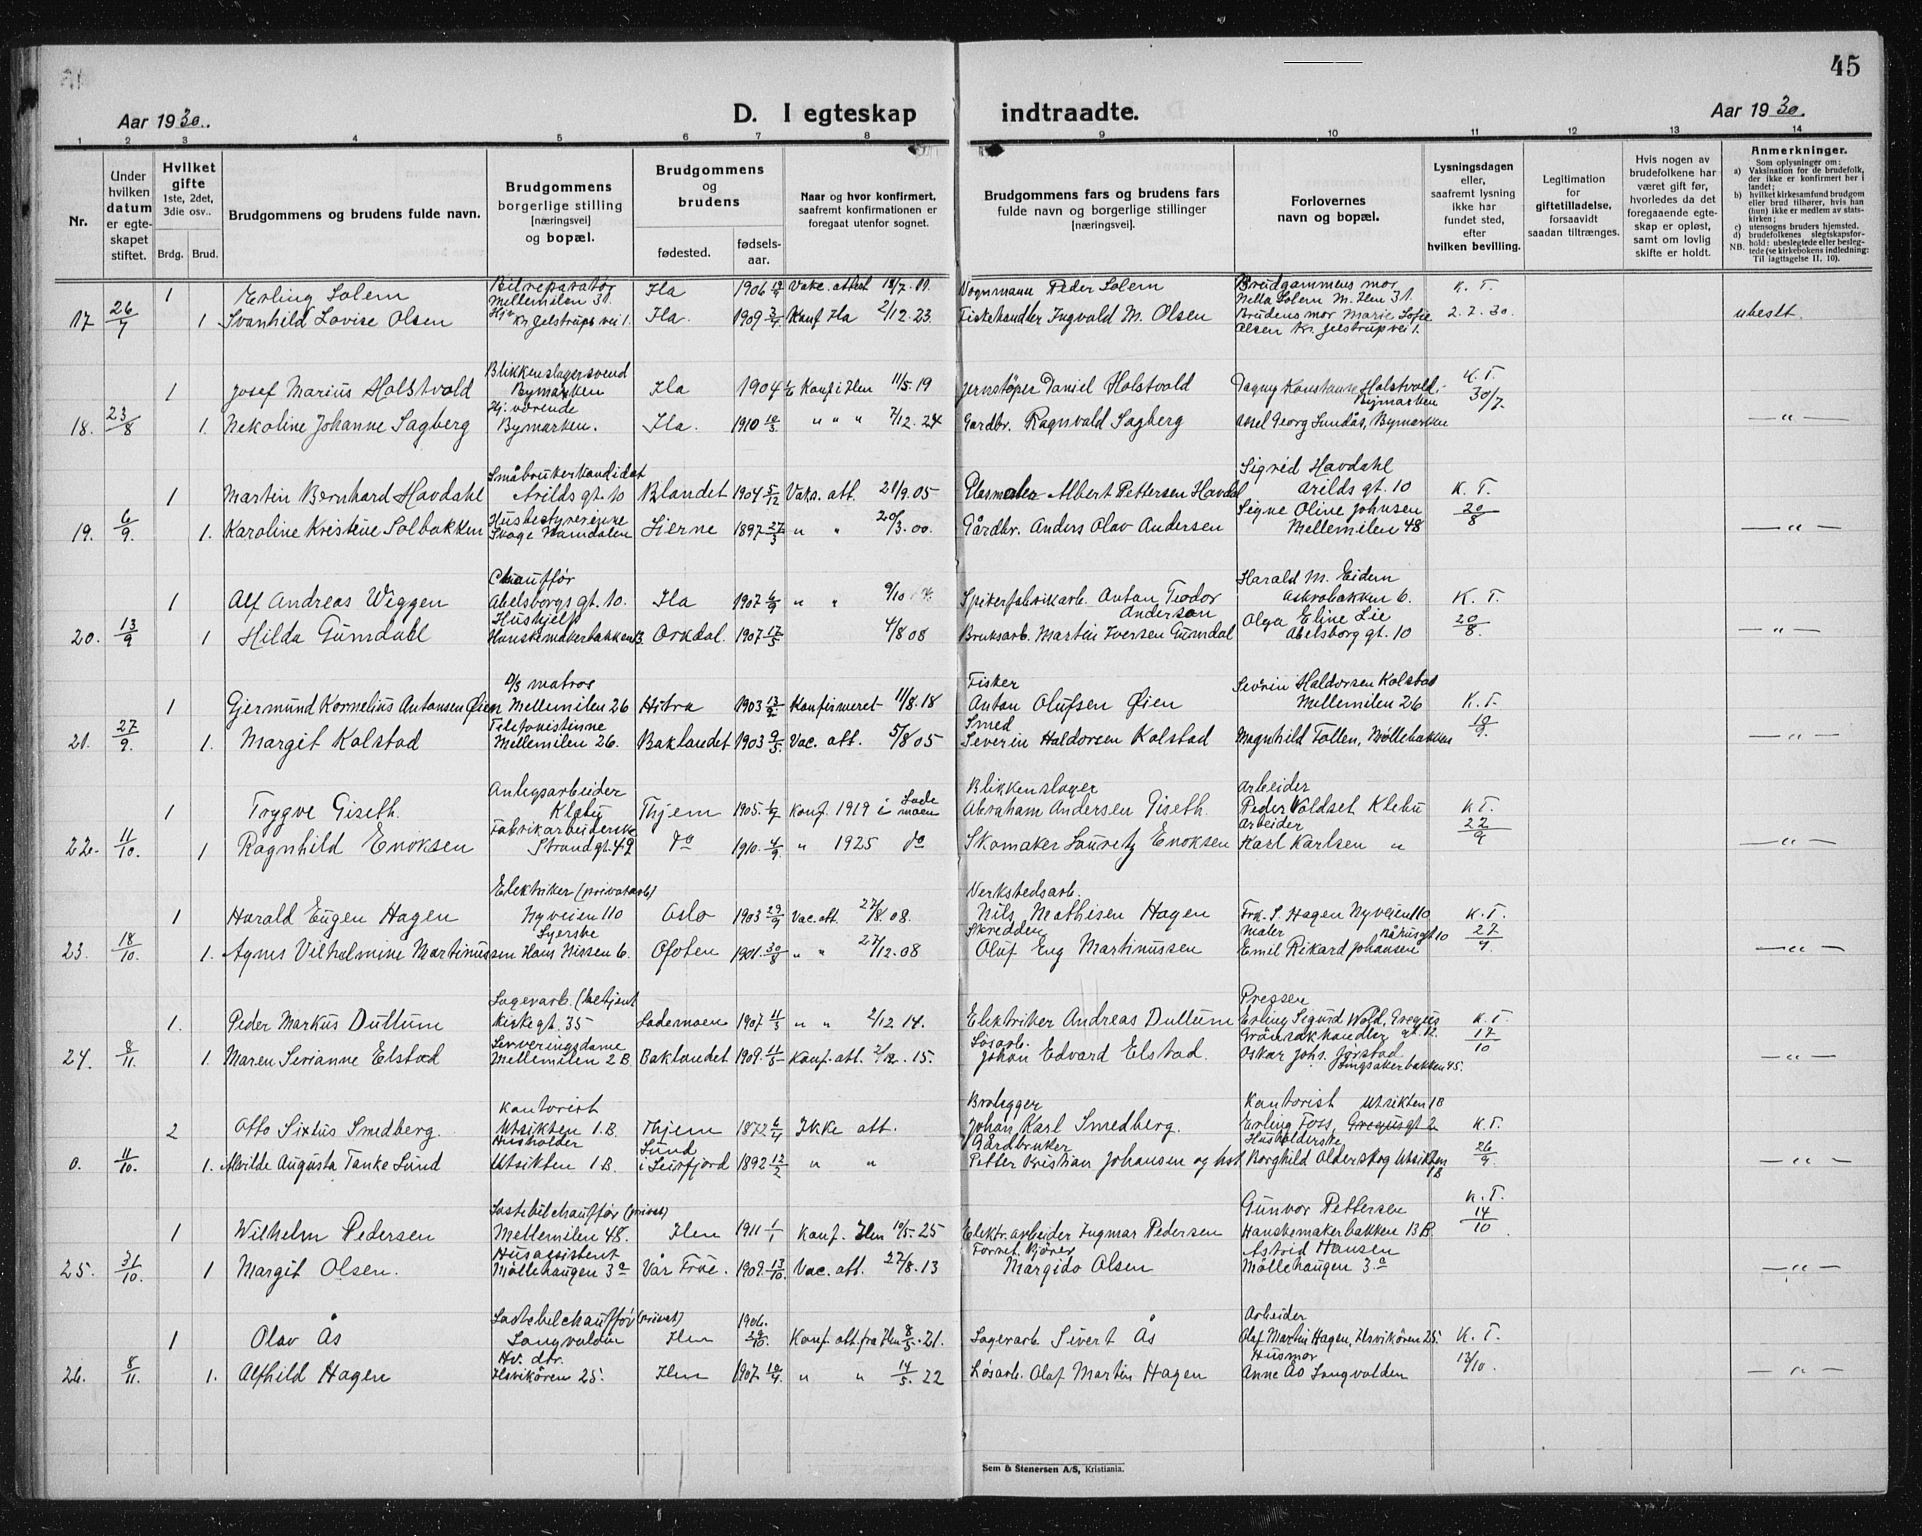 45
Aar 1930.
D. I egteskap indtraadte.
Aar 1930.
1 2 3 4 5 6 7 8 9 10 11 12 13 14
Nr.
Under hvilken datum er egteskapet stiftet.
Hvilket gifte 1ste, 2det, 3die osv..
Brdg. Brud.
Brudgommens og brudens fulde navn.
Brudgommens borgerlige stilling [næringsvei] og bopæl.
Brudgommens og brudens
fødested. fødselsaar.
Naar og hvor konfirmert, saafremt konfirmationen er foregaat utenfor sognet.
Brudgommens fars og brudens fars fulde navn og borgerlige stillinger [næringsvei].
Forlovernes navn og bopæl.
Lysningsdagen eller, saafremt lysning ikke har fundet sted, efter hvilken bevilling.
Legitimation for giftetilladelse, forsaavidt saadan tiltrænges.
Hvis nogen av brudefolkene har været gift før, hvorledes da det foregaaende egteskap er opløst, samt om lovlig skifte er holdt.
Anmerkninger.
Som oplysninger om:
a) Vaksination for de brudefolk, der ikke er konfirmert her i landet;
b) hvilket kirkesamfund brudgom eller brud tilhører, hvis han (hun) ikke er medlem av statskirken;
c) utensogns bruders hjemsted.
d) brudefolkenes slegtskapsforhold: ubeslegtede eller beslegtede (se kirkebokens indledning: Til iagttagelse II, 10).
NB.
1 Erling Solem Bilreparatør Mellemilen 31. Ila 1906 Vakc. attest 18/7. 11. Vognmann Peder Solem Brudgommens mor Nella Solem M. Ilen 31. K. T.
17 26/7 1 Svanhild Lovise Olsen Hj. Kr. Jelstrups vei 1. Ila. 1909 Konf Ila 2/12. 23. Fiskehandler Ingvald M. Olsen Brudens mor Marie Sofie Olsen Kr. Jelstrupvei 1. 2. 7. 30. ubeslt.
1 Josef Marius Holstvold Blikkenslagersvend Bymarken Ila 1904 Konf i Ilen 11/5 19 Jernstøper Daniel Holstvold Dagny Konstanse Holstvold Bymarken K. T. 30/7.
18. 23/8 1. Nekoline Johanne Sagberg Hj. værende Bymarken. Ila. 1910 10/3 " " " 7/12. 24 Gardbr. Ragnvald Sagberg Georg Sundås, Bymarken — " —
1 Martin Bernhard Havdahl Småbrukerkandidat Arilds gt. 10 Blandet 1904 5/12 Vaks. att. 21/9. 05 Glasmester Albert Pettersen Havdal Sigrid Havdahl Arilds gt. 10 K. T.
19. 6/9. 1. Karoline Kristine Solbakken Husbestyrerinne Namdalen Lierne 1897 27/3 " " 20/3. 00. Gårdbr. Anders Olav Andersen Signe Oline Johnsen Mellemilen 48 20/8 — " —
1 Alf Andreas Wiggen Chauffør Abelsborgs gt. 10. Ila 1907 6/9 " " 9/10 Spikerfabrikarb. Anton Teodor Anderson Harald M. Eidem Askrabakken 6. K. T.
20. 13/9 1 Hilda Gumdahl Hushjelp Hanskemakerbakken B. Orkdal. 1907 17/5 4/8 08 Bruksarb. Martin Iversen Gumdal Olga Eline Lie Abelsborg gt. 10 20/8. — " —
1 Gjermund Kornelius Antonsen Øien D/S matros Mellemilen 26 Hitra 1903 13/2 Konfirmeret 11/8. 18 Fisker Anton Olufsen Øien Severin Haldorsen Kolstad Mellemilen 26 K. T.
21. 27/9. 1. Margit Kolstad Telefonistinne Mellemilen 26. Baklandet 1903 9/3. Vac. att. 5/8 05 Smed Severin Haldorsen Kolstad Magnhild Follen, Møllebakken 10/9. — " —
1 Trygve Giseth. Anlegsarbeider Klebu Thjem 1905 6/7 Konf. 1919 i Lademoen Blikkenslager Abraham Andersen Giseth. Arbeider Peder Voldset Klebu K T.
22. 11/10. 1 Ragnhild Enoksen Fabrikarbeiderske Strandgt. 49 do 1910. 4/9. " 1925 do Skomaker Lauretz Enoksen Arbeider Karl Karlsen " 22/9 — " —
1 Harald Eugen Hagen Elektriker (privatarb) Nyveien 110 Oslo 1903 29/9 Vac. att. 27/8. 08. Verkstedsarb. Nils Mathisen Hagen Frk. S. Hagen Nyveien 110 K. T.
23. 18/10. 1. Agnes Vilhelmine Martinussen Syerske Hans Nissen 6. Ofoten 1901. 30/8 " " 27/12. 08 Skredder Oluf Eng Martinussen Maler Emil Rikard Johansen Båhusgt 10 27/9 — " —
1. Peder Markus Dullum Lagerarb. (betjent Kirkegt. 35 Lademoen 1907 11/3 " " 2/12 14. Elektriker Andreas Dullum Presser Erling Sigurd Wold, Gregus gt. 12. K. T.
24. 8/11. 1. Maren Serianne Elstad Serveringsdame Mellemilen 2 B Baklandet 1909. 11/5 Konf. att. 2/12. 15. Løsarb. Johan Edvard Elstad. Grønsakhandler Oskar Johs. Jørstad Singsakerbakken 45. 17/10 — " —
2 Otto Sixtus Smedberg. Kontorist Utsikten 1. B. Thjem 1872 6/4 Ikke att. Brolegger Johan Karl Smedberg. Kontorist Utsikten 1 B Erling Foss, Gregusgt 2 K. T.
0. 11/10. 1. Alvilde Augusta Tanke Lund Husholder Utsikten 1 B. Lund i Leirfjord 1892 12/2 " " Gårdbruker Petter Kristian Johansen og hst Husholderske Borghild Alderskog Utsikten 1B 26/9. — " —
1 Wilhelm Pedersen Lastebilchauffør (privat) Mellemilen 48. Ilen 1911 1/1 Konf. Ilen 10/5. 25 Elektr. arbeider Ingmar Pedersen Gunvor Pettersen Hanskemakerbakken 13 B. K. T. 14/10.
25. 31/10. 1. Margit Olsen. Husassistent Møllehaugen 3a Vår Frue. 1909. 13/10. Vac. att. 27/8. 13 Margido Olsen Astrid Hansen Møllehaugen 3a — " —
1 Olav Ås Lastebilchauffør (privat) Langvalden Ilen 1906. Konf. att. fra Ilen 8/5. 21. Lagerarb. Sivert Ås Arbeider Olaf Martin Hagen, Ilsvikøren 25. K. T.
26. 8/11. 1. Alfhild Hagen Hv. dtr. Ilsvikøren 25. Ilen 1907. " " 14/5. 22 Løsarb. Olaf Martin Hagen Husmor Anne Ås Langvalden 13/10. — " —
Sem & Stenersen A/S, Kristiania.